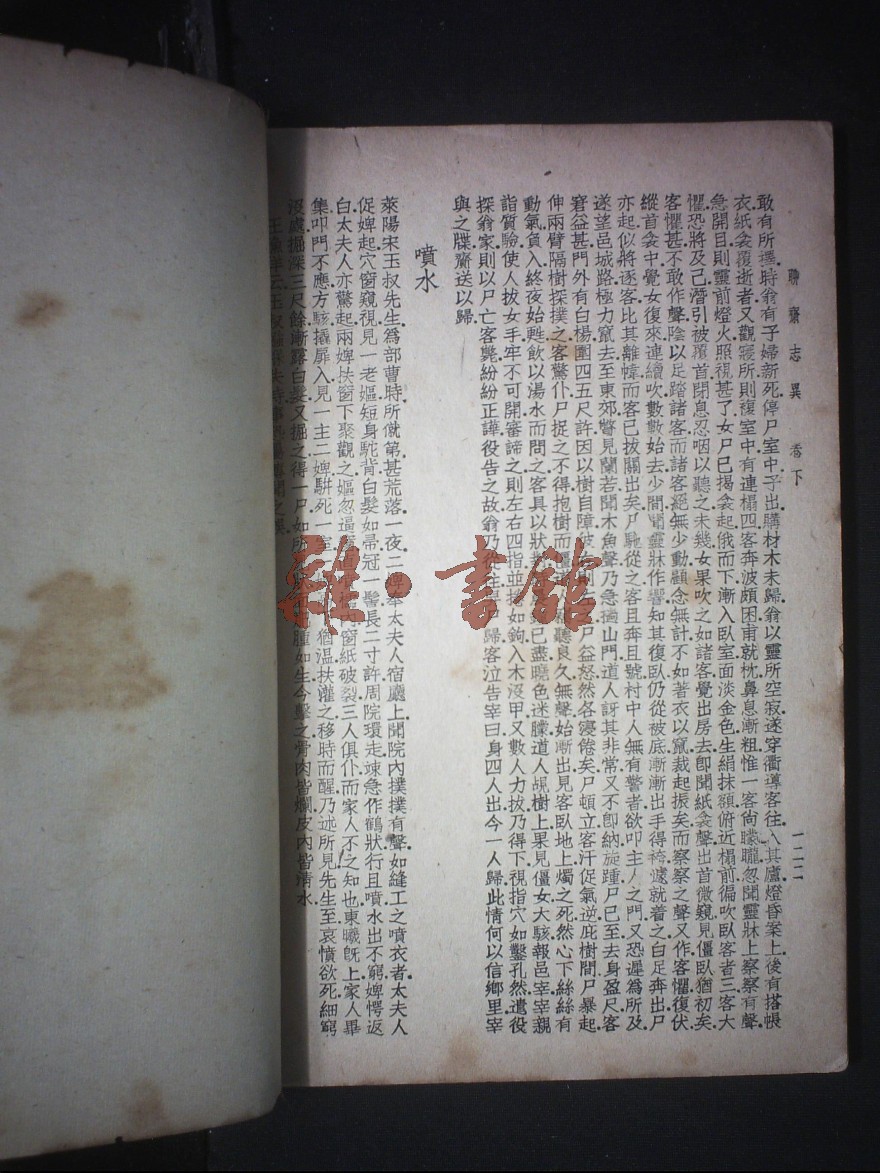 聊齋志異 卷下
一二二
敢有所擇.時翁有子婦新死.停尸室中.子出購材木未歸.翁以靈所空寂.遂穿衢導客往.入其廬.燈昏案上.後有搭帳
衣紙衾覆逝者.又觀寢所.則複室中有連榻.四客奔波頗困.甫就枕.鼻息漸粗.惟一客尙矇矓.忽聞靈牀上察察有聲.
急開目.則靈前燈火照視甚了.女尸已揭衾起.俄而下.漸入臥室.面淡金色.生絹抹額.俯近榻前.徧吹臥客者三.客大
懼.恐將及己.潛引被覆首.閉息忍咽以聽之.未幾女果來吹之如諸客.覺出房去.卽聞紙衾聲.出首微窺.見僵臥猶初矣.
客懼甚.不敢作聲.陰以足踏諸客.而諸客絕無少動.顧念無計.不如著衣以竄.裁起振衣.而察察之聲又作.客懼復伏
縱首衾中.覺女復來.連續吹數數始去.少間聞靈牀作響.知其復臥.仍從被底漸漸出手得袴.遽就着之.白足奔出.尸
亦起.似將逐客.比其離幃.而客已拔關出矣.尸馳從之.客且奔且號.村中人無有警者.欲叩主人之門.又恐遲爲所及.
遂望邑城路極力竄去.至東郊.瞥見蘭若.聞木魚聲.乃急撾山門.道人訝其非常.又不卽納.旋踵尸已至.去身盈尺.客
窘益甚.門外有白楊.圍四五尺許.因以樹自障.彼 尸益怒.然各寖倦矣.尸頓立.客汗促氣逆.庇樹間.尸暴起.
伸兩臂隔樹探撲之.客驚仆.尸捉之不得.抱樹而僵. 聽良久無聲.始漸出.見客臥地上.燭之死.然心下絲絲有
動氣.負入.終夜始甦.飲以湯水而問之.客具以狀 已盡.曉色迷朦.道人覘樹上.果見僵女.大駭.報邑宰.宰親
詣質驗.使人拔女手.牢不可開.審諦之.則左右四指並捲如鉤.入木沒甲.又數人力拔乃得下.視指穴如鑿孔然.遣役
探翁家.則以尸亡客斃.紛紛正譁.役告之故.翁乃從往 尸歸.客泣告宰曰.身四人出.今一人歸.此情何以信鄉里.宰
與之牒.齎送以歸.
噴水
萊陽宋玉叔先生爲部曹時.所僦第甚荒落.一夜二婢奉太夫人宿廳上.聞院內撲撲有聲.如縫工之噴衣者.太夫人
促婢起.穴窗窺視.見一老嫗.短身駝背.白髮如帚.冠一髻長二寸許.周院環走.竦急作鶴狀.行且噴水出不窮.婢愕返
白.太夫人亦驚起.兩婢扶窗下聚觀之.嫗忽逼窗 窗紙破裂.三人俱仆.而家人不之知也.東曦旣上.家人畢
集.叩門不應.方駭.撬扉入.見一主二婢駢死一室. 猶溫.扶灌之.移時而醒.乃述所見.先生至.哀憤欲死.細窮
沒處.掘深三尺餘.漸露白髮.又掘之.得一尸.如所 腫如生.令擊之.骨肉皆爛.皮內皆清水.
王漁洋云.玉叔
雜·書館